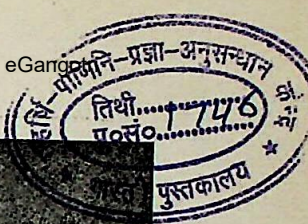 eGangotri
महर्षि-पाणिनि-प्रज्ञा-अनुसन्धान
तिथी..............
प्र०सं०..1746......
पुस्तकालय